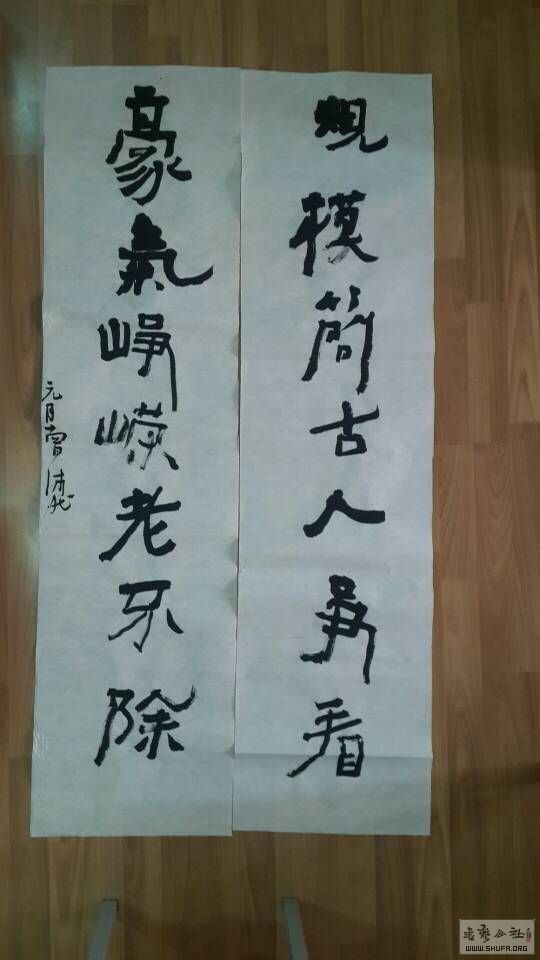 规模简古人争看
豪氣峥嵘老不除
元月曾
書藝公社
WWW.SHUFA.ORG